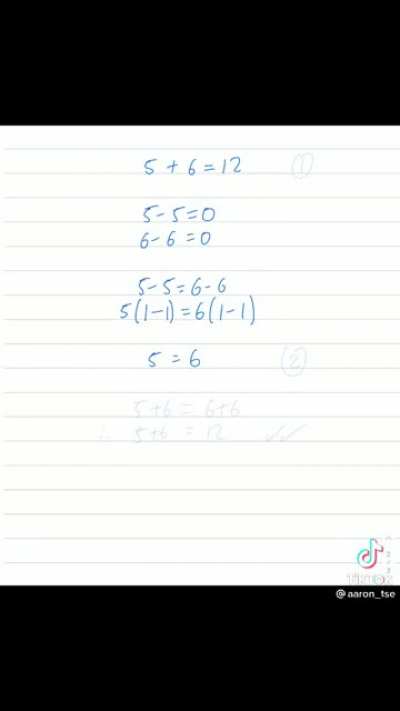 5 + 6 = 12 ①
5 - 5 = 0
6 - 6 = 0
5 - 5 = 6 - 6
5(1-1) = 6(1-1)
5 = 6 ②
5+6 = 6+6
∴ 5+6 = 12 ✓✓
TikTok
@aaron_tse